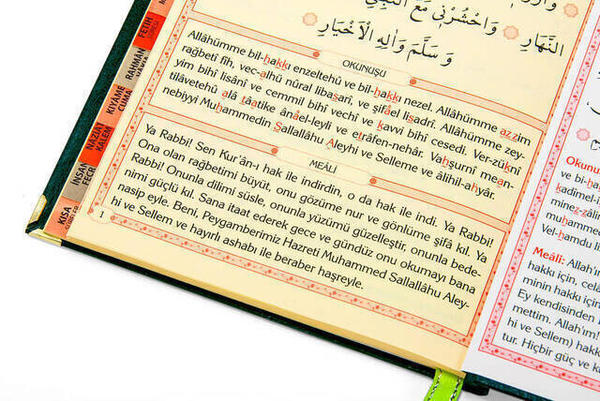 النَّهَارِ وَاحْشُرْنِي مَعَ النَّبِيِّ
وَسَلَّمَ وَاٰلِهِ الْاَخْيَارِ
OKUNUŞU
Allâhümme bil-hakkı enzeltehü ve bil-hakkı nezel. Allâhümme azzim
rağbetî fîh, vec-alhü nûral libasarî, ve şifâel lisadrî. Allâhümme zey-
yim bihî lisânî ve cemmil bihî vechî ve kavvi bihî cesedî. Ver-züknî
tilâvetehû alâ tâatike ânâel-leyli ve etrâfen-nehâr. Vahşurnî mean-
nebiyyi Muhammedin Sallallâhu Aleyhi ve Selleme ve âlihil-ahyâr.
MEÂLİ
Ya Rabbi! Sen Kur'ân-ı hak ile indirdin, o da hak ile indi. Ya Rabbi!
Ona olan rağbetimi büyüt, onu gözüme nur ve gönlüme şifâ kıl. Ya
Rabbi! Onunla dilimi süsle, onunla yüzümü güzelleştir, onunla bede-
nimi güçlü kıl. Sana itaat ederek gece ve gündüz onu okumayı bana
nasip eyle. Beni, Peygamberimiz Hazreti Muhammed Sallallâhu Aley-
hi ve Sellem ve hayırlı ashabı ile beraber haşreyle.
1
FETİH
RAHMAN
KIYAME
CUMA
NAZİAT
KALEM
İNSAN
FECR
KISA
Okunu
ve bi-
kadimel-i
minez-zâli
muhamme
Vel-hamdu l
Meâli: Allah'ı
hakkı için, cela
minin hakkı için
Ey kendisinden
mettim. Allah'ım!
hi ve Sellem) hakkı
tur. Hiçbir güç ve k